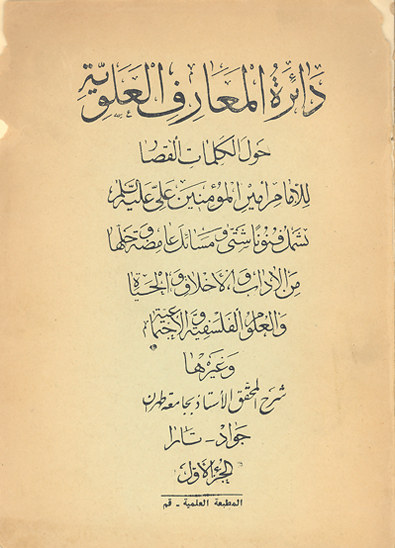 دَائِرَةُ المَعَارِفِ العَلَوِيَّةِ
حَولَ الكَلِمَاتِ القِصَار
لِلإمَامِ أمِيرِ المُؤمِنِينَ عَلِيٍّ عَلَيهِ السَّلَام
تَشمَلُ فُنُونًا شَتّى وَمَسَائِلَ عَامِضَة وَحَلِّهَا
مِنَ الآدَابِ وَالأخلَاقِ وَالحَيَاةِ
وَالعُلُومِ الفَلسَفِيَّةِ وَالاِجتِمَاعِيَّةِ
وَغَيرِهَا
شرح المحقق الأستاذ بجامعة طهران
جواد - تارا
الجُزءُ الأوَّل
المطبعة العلمية - قم